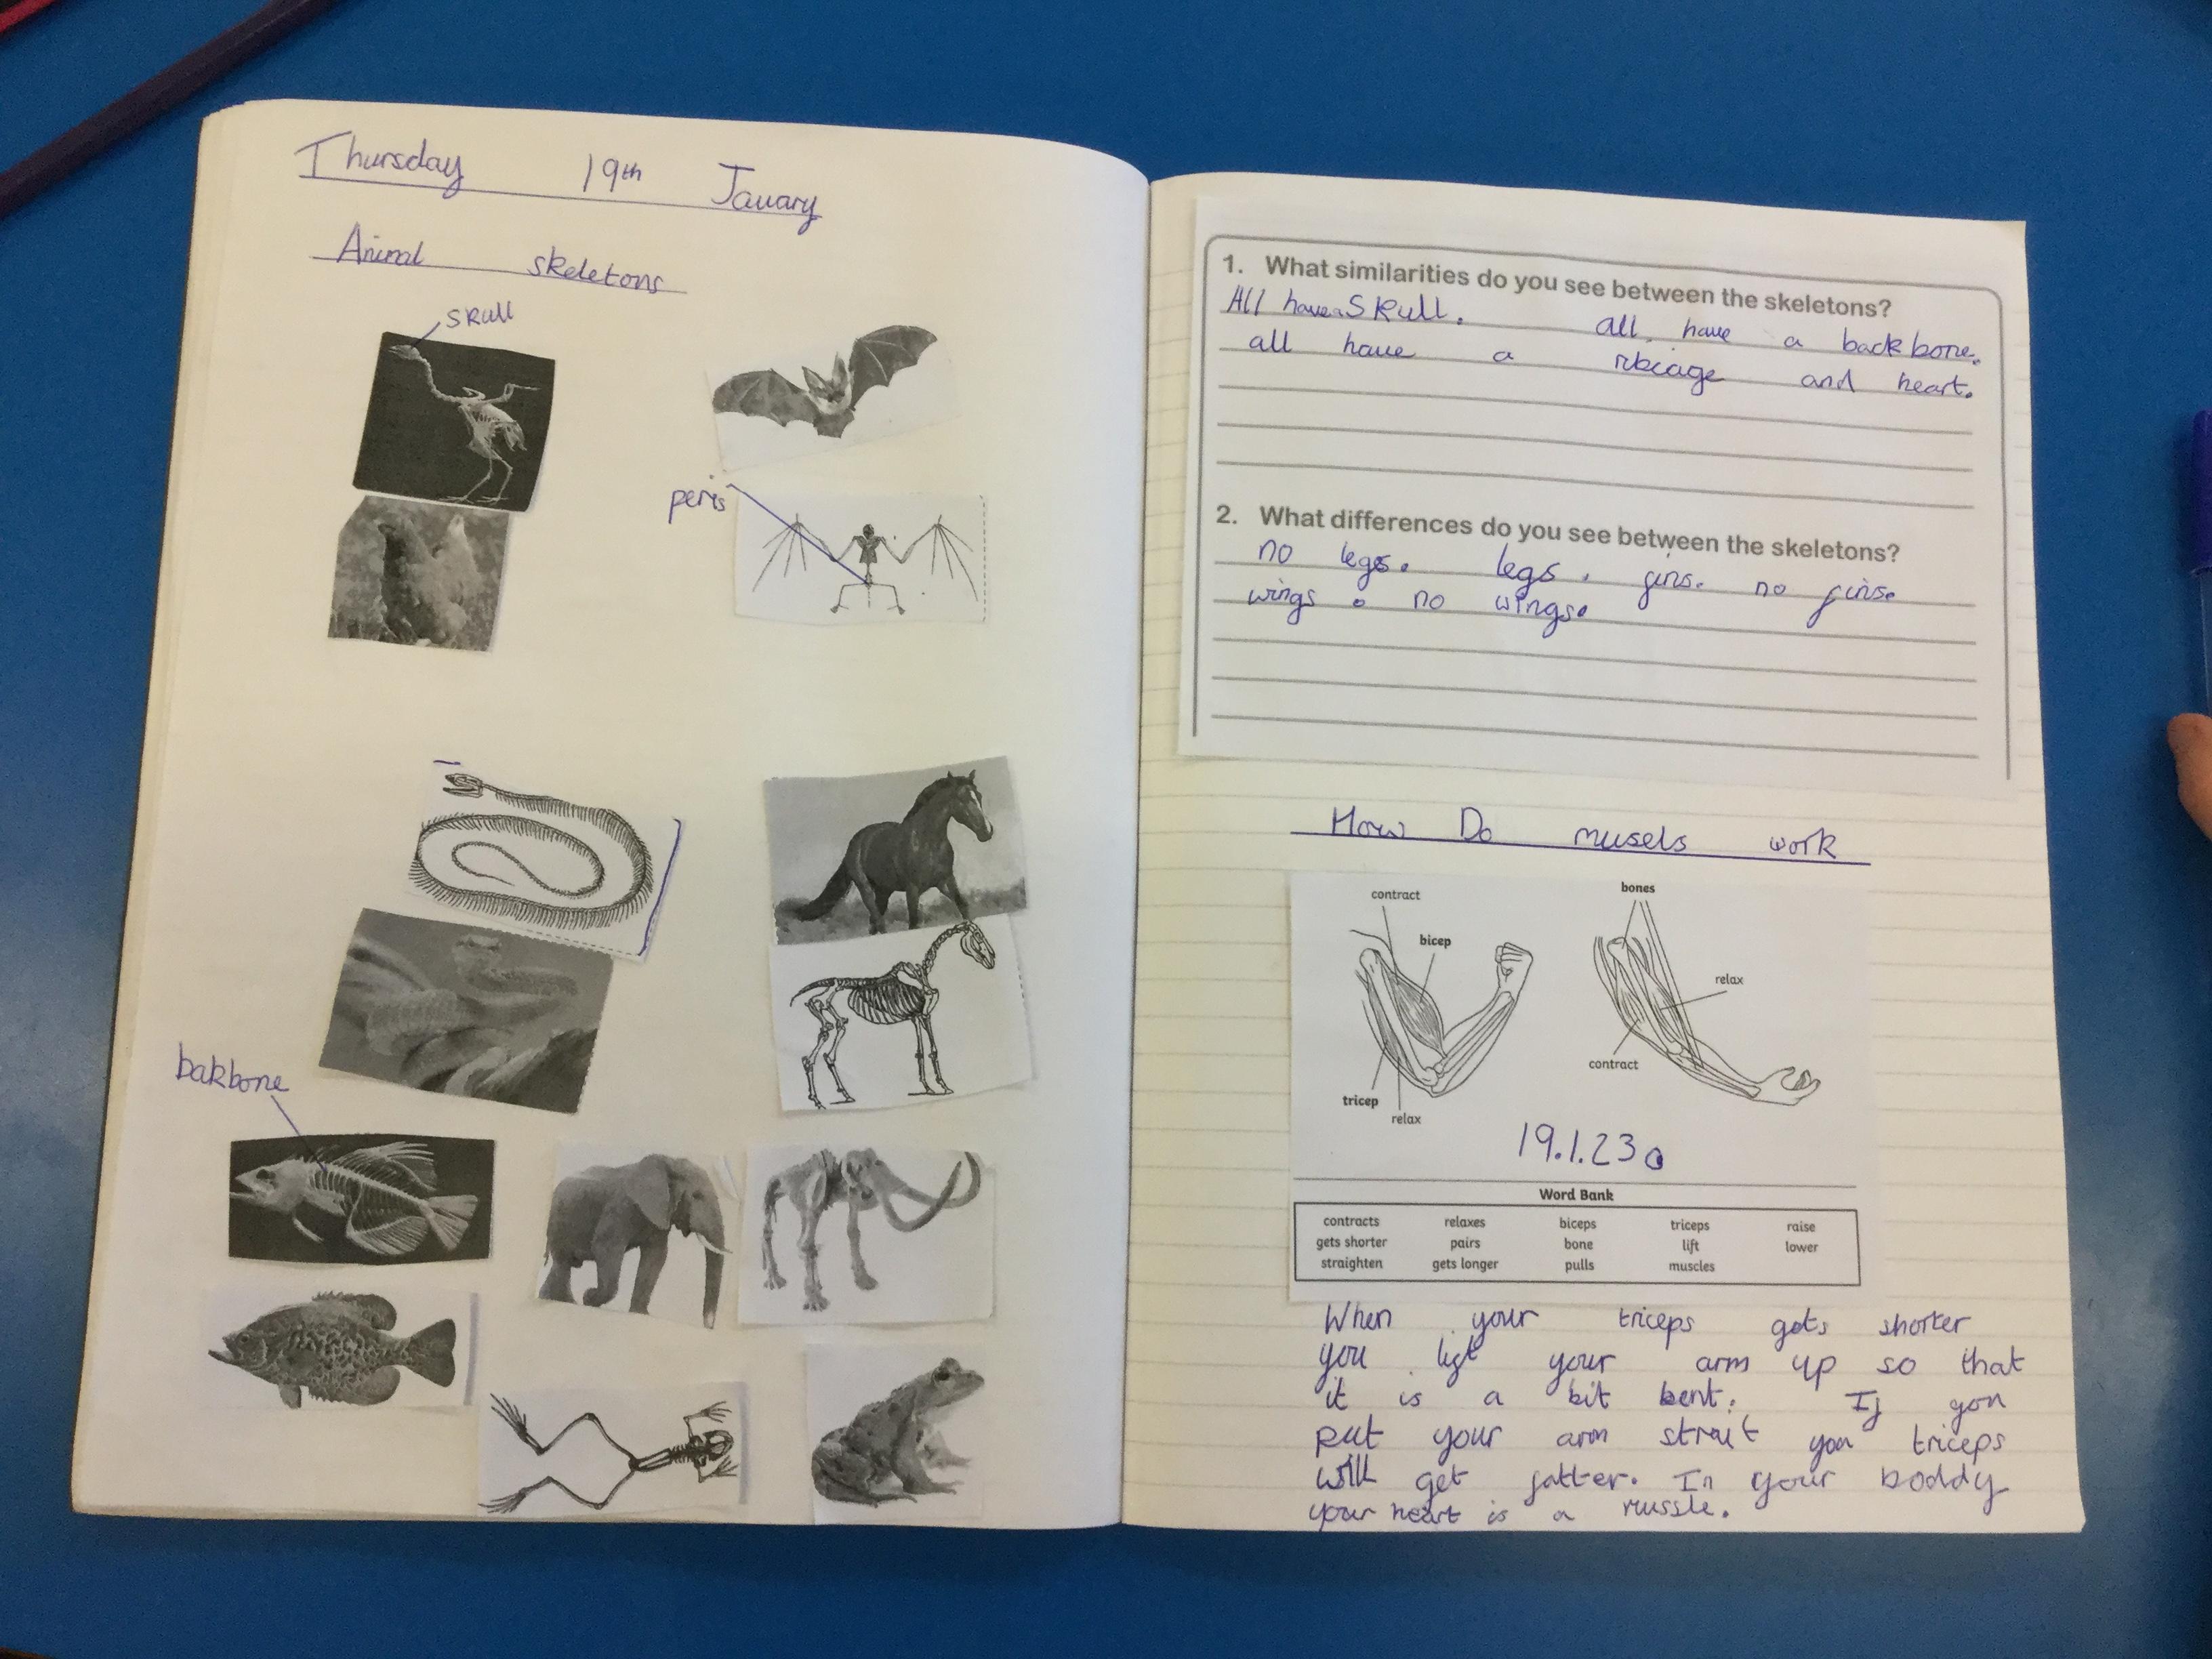 Thursday 19th Jauary
Animal skeletons
skull
bakbone
1. What similarities do you see between the skeletons?
All have a Skull. all have a back bone.
all have a ribcage and heart.
2. What differences do you see between the skeletons?
no legs. legs. fins. no fins.
wings. no wings.
How Do musels work
contract
bicep
tricep
relax
bones
relax
contract
19.1.23
Word Bank
contracts relaxes biceps triceps raise
gets shorter pairs bone lift lower
straighten gets longer pulls muscles
When your triceps gets shorter
you lift your arm up so that
it is a bit bent. If you
put your arm strait your triceps
will get fatter. In your boddy
your heart is a mussle.